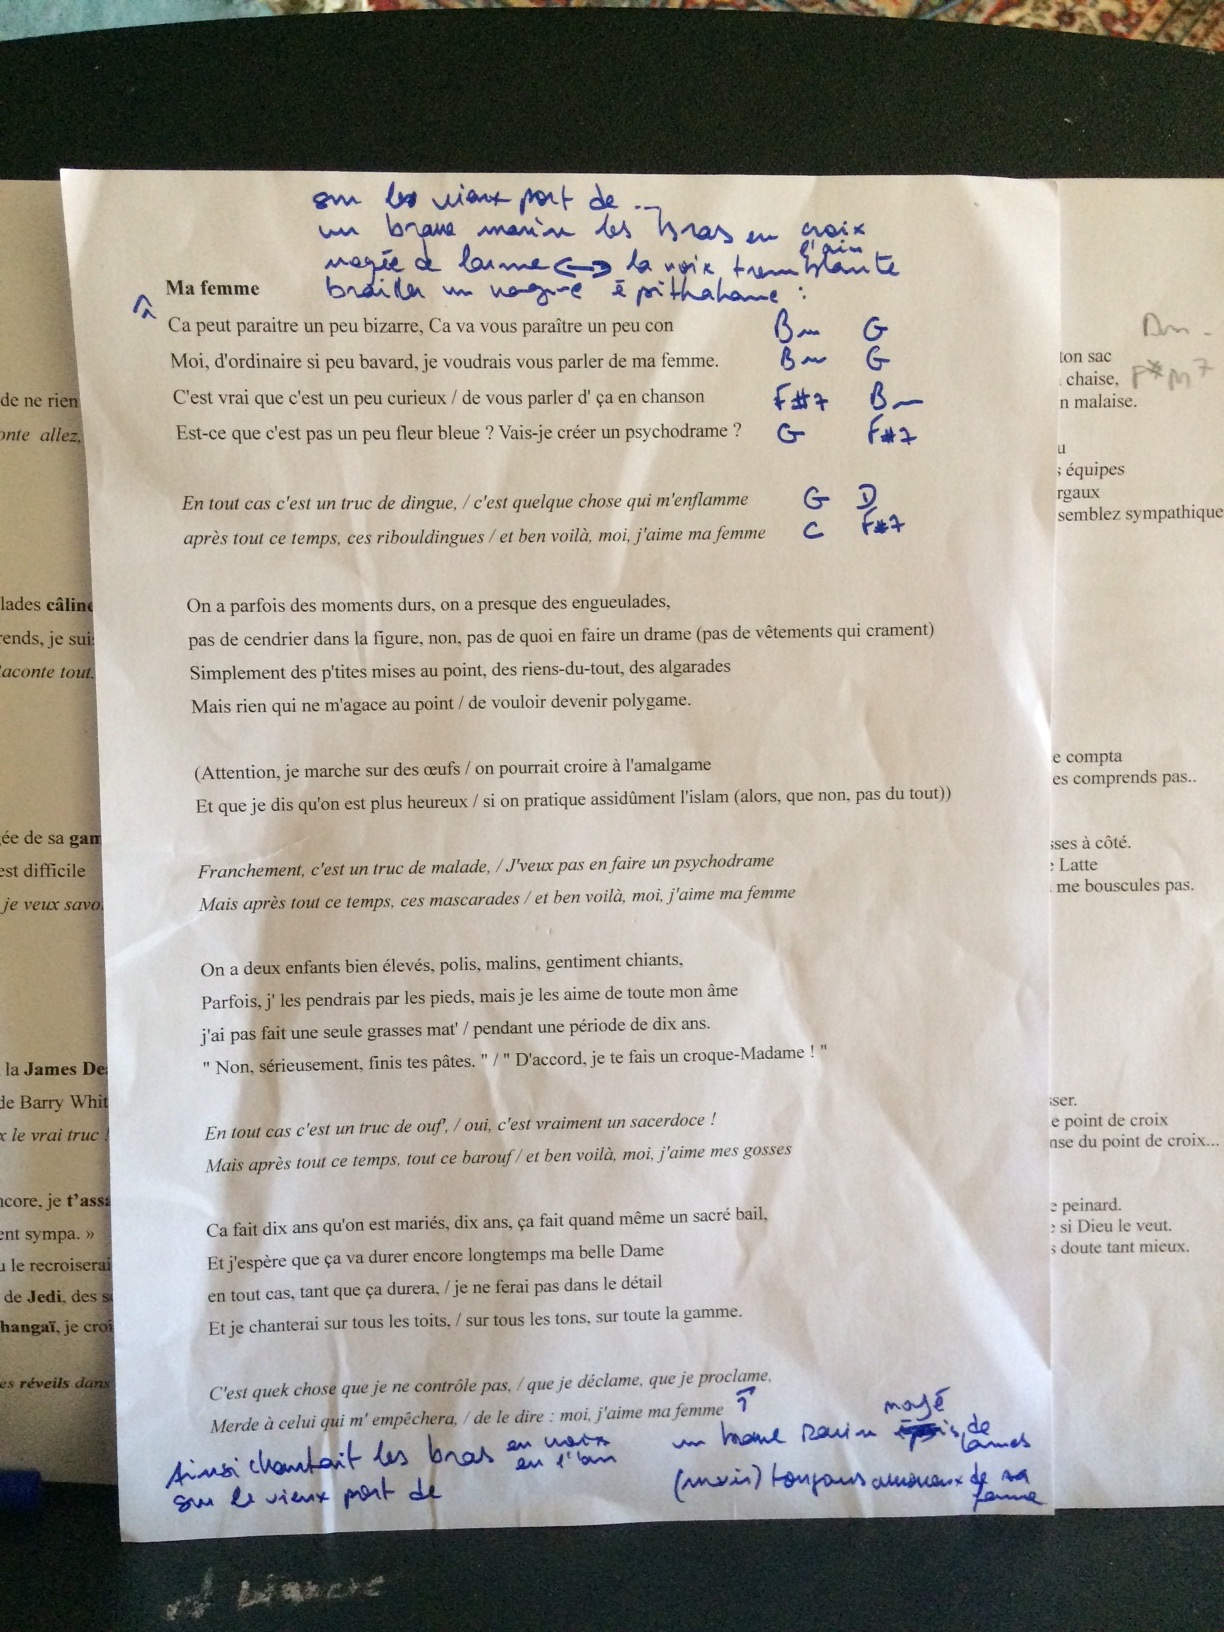 sur les vieux port de ...
un brave marin les bras en croix
l'air
noyée de larme <-> la voix tremblante
brailler un vague épithalame :
Ma femme
Ca peut paraitre un peu bizarre, Ca va vous paraître un peu con Bm G
Moi, d'ordinaire si peu bavard, je voudrais vous parler de ma femme. Bm G
C'est vrai que c'est un peu curieux / de vous parler d' ça en chanson F#7 Bm
Est-ce que c'est pas un peu fleur bleue ? Vais-je créer un psychodrame ? G F#7
En tout cas c'est un truc de dingue, / c'est quelque chose qui m'enflamme G D
après tout ce temps, ces ribouldingues / et ben voilà, moi, j'aime ma femme C F#7
On a parfois des moments durs, on a presque des engueulades,
pas de cendrier dans la figure, non, pas de quoi en faire un drame (pas de vêtements qui crament)
Simplement des p'tites mises au point, des riens-du-tout, des algarades
Mais rien qui ne m'agace au point / de vouloir devenir polygame.
(Attention, je marche sur des œufs / on pourrait croire à l'amalgame
Et que je dis qu'on est plus heureux / si on pratique assidûment l'islam (alors, que non, pas du tout))
Franchement, c'est un truc de malade, / J'veux pas en faire un psychodrame
Mais après tout ce temps, ces mascarades / et ben voilà, moi, j'aime ma femme
On a deux enfants bien élevés, polis, malins, gentiment chiants,
Parfois, j' les pendrais par les pieds, mais je les aime de toute mon âme
j'ai pas fait une seule grasses mat' / pendant une période de dix ans.
" Non, sérieusement, finis tes pâtes. " / " D'accord, je te fais un croque-Madame ! "
En tout cas c'est un truc de ouf', / oui, c'est vraiment un sacerdoce !
Mais après tout ce temps, tout ce barouf / et ben voilà, moi, j'aime mes gosses
Ca fait dix ans qu'on est mariés, dix ans, ça fait quand même un sacré bail,
Et j'espère que ça va durer encore longtemps ma belle Dame
en tout cas, tant que ça durera, / je ne ferai pas dans le détail
Et je chanterai sur tous les toits, / sur tous les tons, sur toute la gamme.
C'est quek chose que je ne contrôle pas, / que je déclame, que je proclame,
Merde à celui qui m' empêchera, / de le dire : moi, j'aime ma femme
Ainsi chantait les bras en croix
en l'air
sur le vieux port de
un brave marin noyé de larmes
(mais) toujours amoureux de sa femme
de ne rien
onte allez,
lades câline
rends, je suis
raconte tout.
ée de sa gam
est difficile
je veux savo
la James De
de Barry Whit
x le vrai truc !
ncore, je t'assa
ent sympa. »
u le recroiserai
de Jedi, des s
hangaï, je croi
es réveils dans
Dm -
ton sac
chaise, F#M7
n malaise.
u
s équipes
rgaux
semblez sympathique
e compta
es comprends pas..
sses à côté.
e Latte
me bouscules pas.
sser.
e point de croix
nse du point de croix...
e peinard.
e si Dieu le veut.
s doute tant mieux.